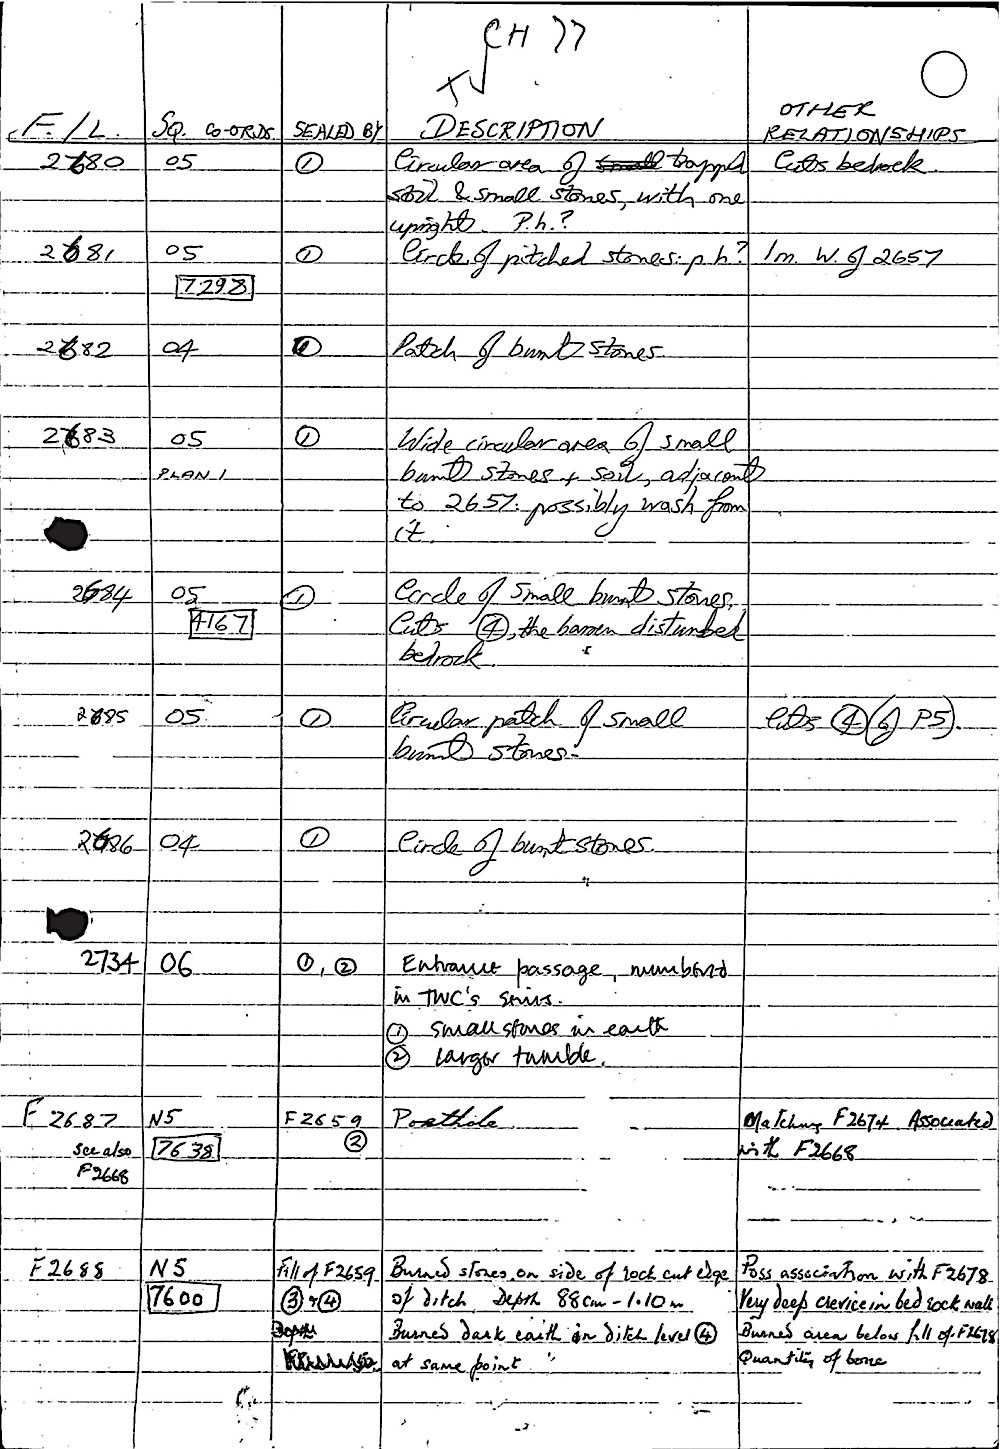 CH 77
TV
F./L. SQ. CO-ORDS SEALED BY DESCRIPTION OTHER RELATIONSHIPS
2680 05 ① Circular area of small trapped Cuts bedrock.
soil & small stones, with one
upright. P.h.?
2681 05 ① Circle of pitched stones: p.h? 1m. W. of 2657
7298
2682 04 ① Patch of burnt stones.
2683 05 ① Wide circular area of small
PLAN 1 burnt stones + soil, adjacent
to 2657: possibly wash from
it.
2684 05 ① Circle of small burnt stones.
4167 Cuts ④, the barren disturbed
bedrock.
2685 05 ① Circular patch of small Cuts ④ (of P5).
burnt stones.
2686 04 ① Circle of burnt stones.
2734 06 ①, ② Entrance passage, numbered
in TWC's series.
① small stones in earth
② larger tumble.
F2687 N5 F2659 Posthole Matching F2674. Associated
see also 7638 ② with F2668
F2668
F2688 N5 Fill of F2659 Burned stones on side of rock cut edge Poss association with F2678
7600 ③ + ④ of ditch. Depth 88cm - 1.10m Very deep crevice in bed rock wall
Depth Burned dark earth in ditch level ④ Burned area below fill of F2678
at same point " Quantity of bone